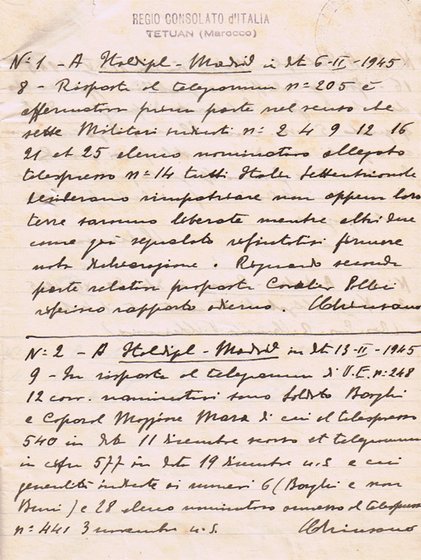 REGIO CONSOLATO d'ITALIA
TETUAN (Marocco)
N° 1 - A Italdipl - Madrid in dt 6-II-1945
8 - Risposta al telegramma n° 205 è
affermativa prima parte nel senso che
sette Militari indicati n° 2 4 9 12 16
21 et 25 elenco nominativo allegato
telespresso n° 14 tutti Italia Settentrionale
desiderano rimpatriare non appena loro
terre saranno liberate mentre altri due
come già segnalato rifiutatisi firmare
nota dichiarazione. Riguardo seconda
parte relativa proposta
riferisco rapporto odierno.
N° 2 - A Italdipl - Madrid in dt 13-II-1945
9 - In risposta al telegramma di V.E. n° 248
12 corr. nominativi sono Soldato Borghi
e Caporal Maggiore Mara di cui al telespresso
540 in data 11 dicembre scorso et telegramma
in cifra 577 in data 19 dicembre u.s. e cui
generalità indicate ai numeri 6 (Borghi e non
) e 28 elenco nominativo annesso al telespresso
n° 441 3 novembre u.s.